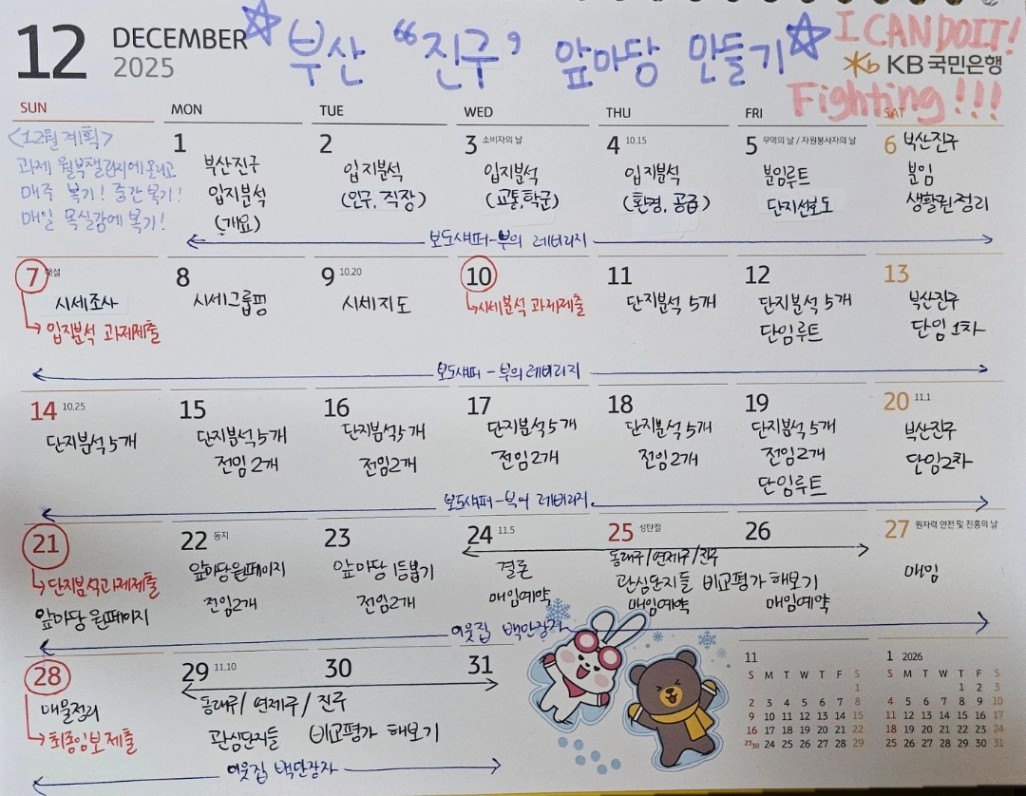 12
DECEMBER
2025
☆부산 “진구” 앞마당 만들기☆
I CAN DO IT!
KB국민은행
Fighting!!!
SUN MON TUE WED THU FRI SAT
<12월 계획>
매주 복기! 중간 복기!
매일 목실감에 복기!
1
부산진구
입지분석
(개요)
2
입지분석
(인구, 직장)
3 소비자의 날
입지분석
(교통, 학군)
4 10.15
입지분석
(환경, 공급)
5 무역의 날 / 자원봉사자의 날
분임루트
단지선도
6 부산진구
분임
생활권정리
보도섀퍼-부의 레버리지
7 대설
시세조사
→입지분석 과제제출
8
시세그룹핑
9 10.20
시세지도
10
→시세분석 과제제출
11
단지분석 5개
12
단지분석 5개
단임루트
13
부산진구
단임 1차
보도섀퍼-부의 레버리지
14 10.25
단지분석 5개
15
단지분석 5개
전임 2개
16
단지분석 5개
전임2개
17
단지분석 5개
전임2개
18
단지분석 5개
전임 2개
19
단지분석 5개
전임2개
단임루트
20 11.1
부산진구
단임2차
보도섀퍼-부의 레버리지
21
→단지분석과제제출
앞마당 원페이지
22 동지
앞마당원페이지
전임2개
23
앞마당 1등뽑기
전임2개
24 11.5
결론
매임예약
25 성탄절
26
동래구/연제구/진구
관심단지들 비교평가 해보기
매임예약 매임예약
27 원자력 안전 및 진흥의 날
매임
이웃집 백만장자
28
매물정리
→최종임보 제출
29 11.10
30
31
동래구/ 연제구/ 진구
관심단지들 비교평가 해보기
이웃집 백만장자
11
S M T W T F S
1
2 3 4 5 6 7 8
9 10 11 12 13 14 15
16 17 18 19 20 21 22
23/30 24 25 26 27 28 29
1 2026
S M T W T F S
1 2 3
4 5 6 7 8 9 10
11 12 13 14 15 16 17
18 19 20 21 22 23 24
25 26 27 28 29 30 31